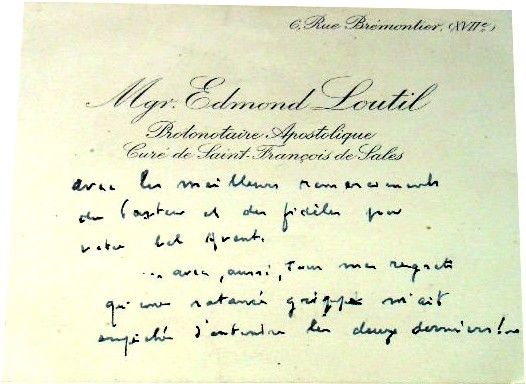 6, Rue Brémontier, (XVIIe)
Mgr. Edmond Loutil
Protonotaire Apostolique
Curé de Saint-François de Sales
avec les meilleurs remerciements
du Pasteur et des fidèles pour
votre bel Avent.
... avec, aussi, tous mes regrets
qu'une satanée grippe m'ait
empêché d'entendre les deux derniers !